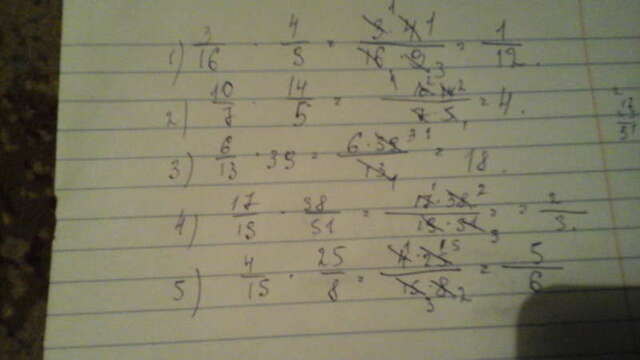 1) 3/16 · 4/9 = 3·4/16·9 = 1/12.
2) 10/7 · 14/5 = 10·14/7·5 = 4.
3) 6/13 · 39 = 6·39/13 = 18.
4) 17/19 · 38/51 = 17·38/19·51 = 2/3.
5) 4/15 · 25/8 = 4·25/15·8 = 5/6